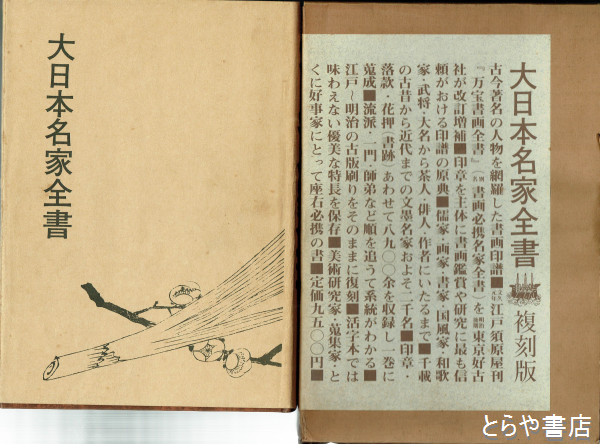 大日本名家全書
大日本名家全書 複刻版
古今著名の人物を網羅した書画印譜■江戸須原屋刊
『万宝書画全書』(書画必携名家全書)を東京好古
社が改訂増補■印章を主体に書画鑑賞や研究に最も信
頼がおける印譜の原典■儒家・画家・書家・国風家・和歌
家・武将・大名から茶人・俳人・作者にいたるまで■千載
の古昔から近代までの文墨名家およそ二千名■印章・
落款・花押(書跡)あわせて八九〇〇余を収録し一巻に
蒐成■流派・一門・師弟など順を追うて系統がわかる■
江戸〜明治の古版刷りをそのままに復刻■活字本では
味わえない優美な特長を保存■美術研究家・蒐集家・と
くに好事家にとって座右必携の書■定価九五〇〇円■
とらや書店